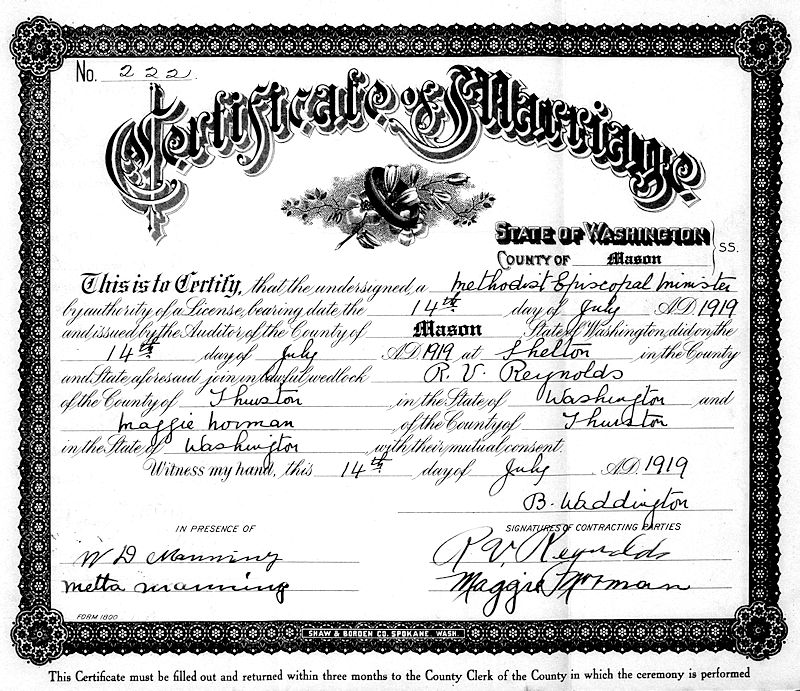 No. 222.
Certificate of Marriage.
STATE OF WASHINGTON
COUNTY OF Mason } SS.
This is to Certify, that the undersigned, a Methodist Episcopal Minister
by authority of a License, bearing date the 14th day of July A.D. 1919
and issued by the Auditor of the County of Mason State of Washington, did on the
14th day of July A.D. 1919 at Shelton in the County
and State aforesaid join in lawful wedlock R. V. Reynolds
of the County of Thurston in the State of Washington and
Maggie Norman of the County of Thurston
in the State of Washington with their mutual consent.
Witness my hand, this 14th day of July A.D. 1919
B. Waddington
IN PRESENCE OF
SIGNATURES OF CONTRACTING PARTIES
W D Manning
R. V. Reynolds
Metta Manning
Maggie Norman
FORM 1800
SHAW & BORDEN CO. SPOKANE WASH.
This Certificate must be filled out and returned within three months to the County Clerk of the County in which the ceremony is performed